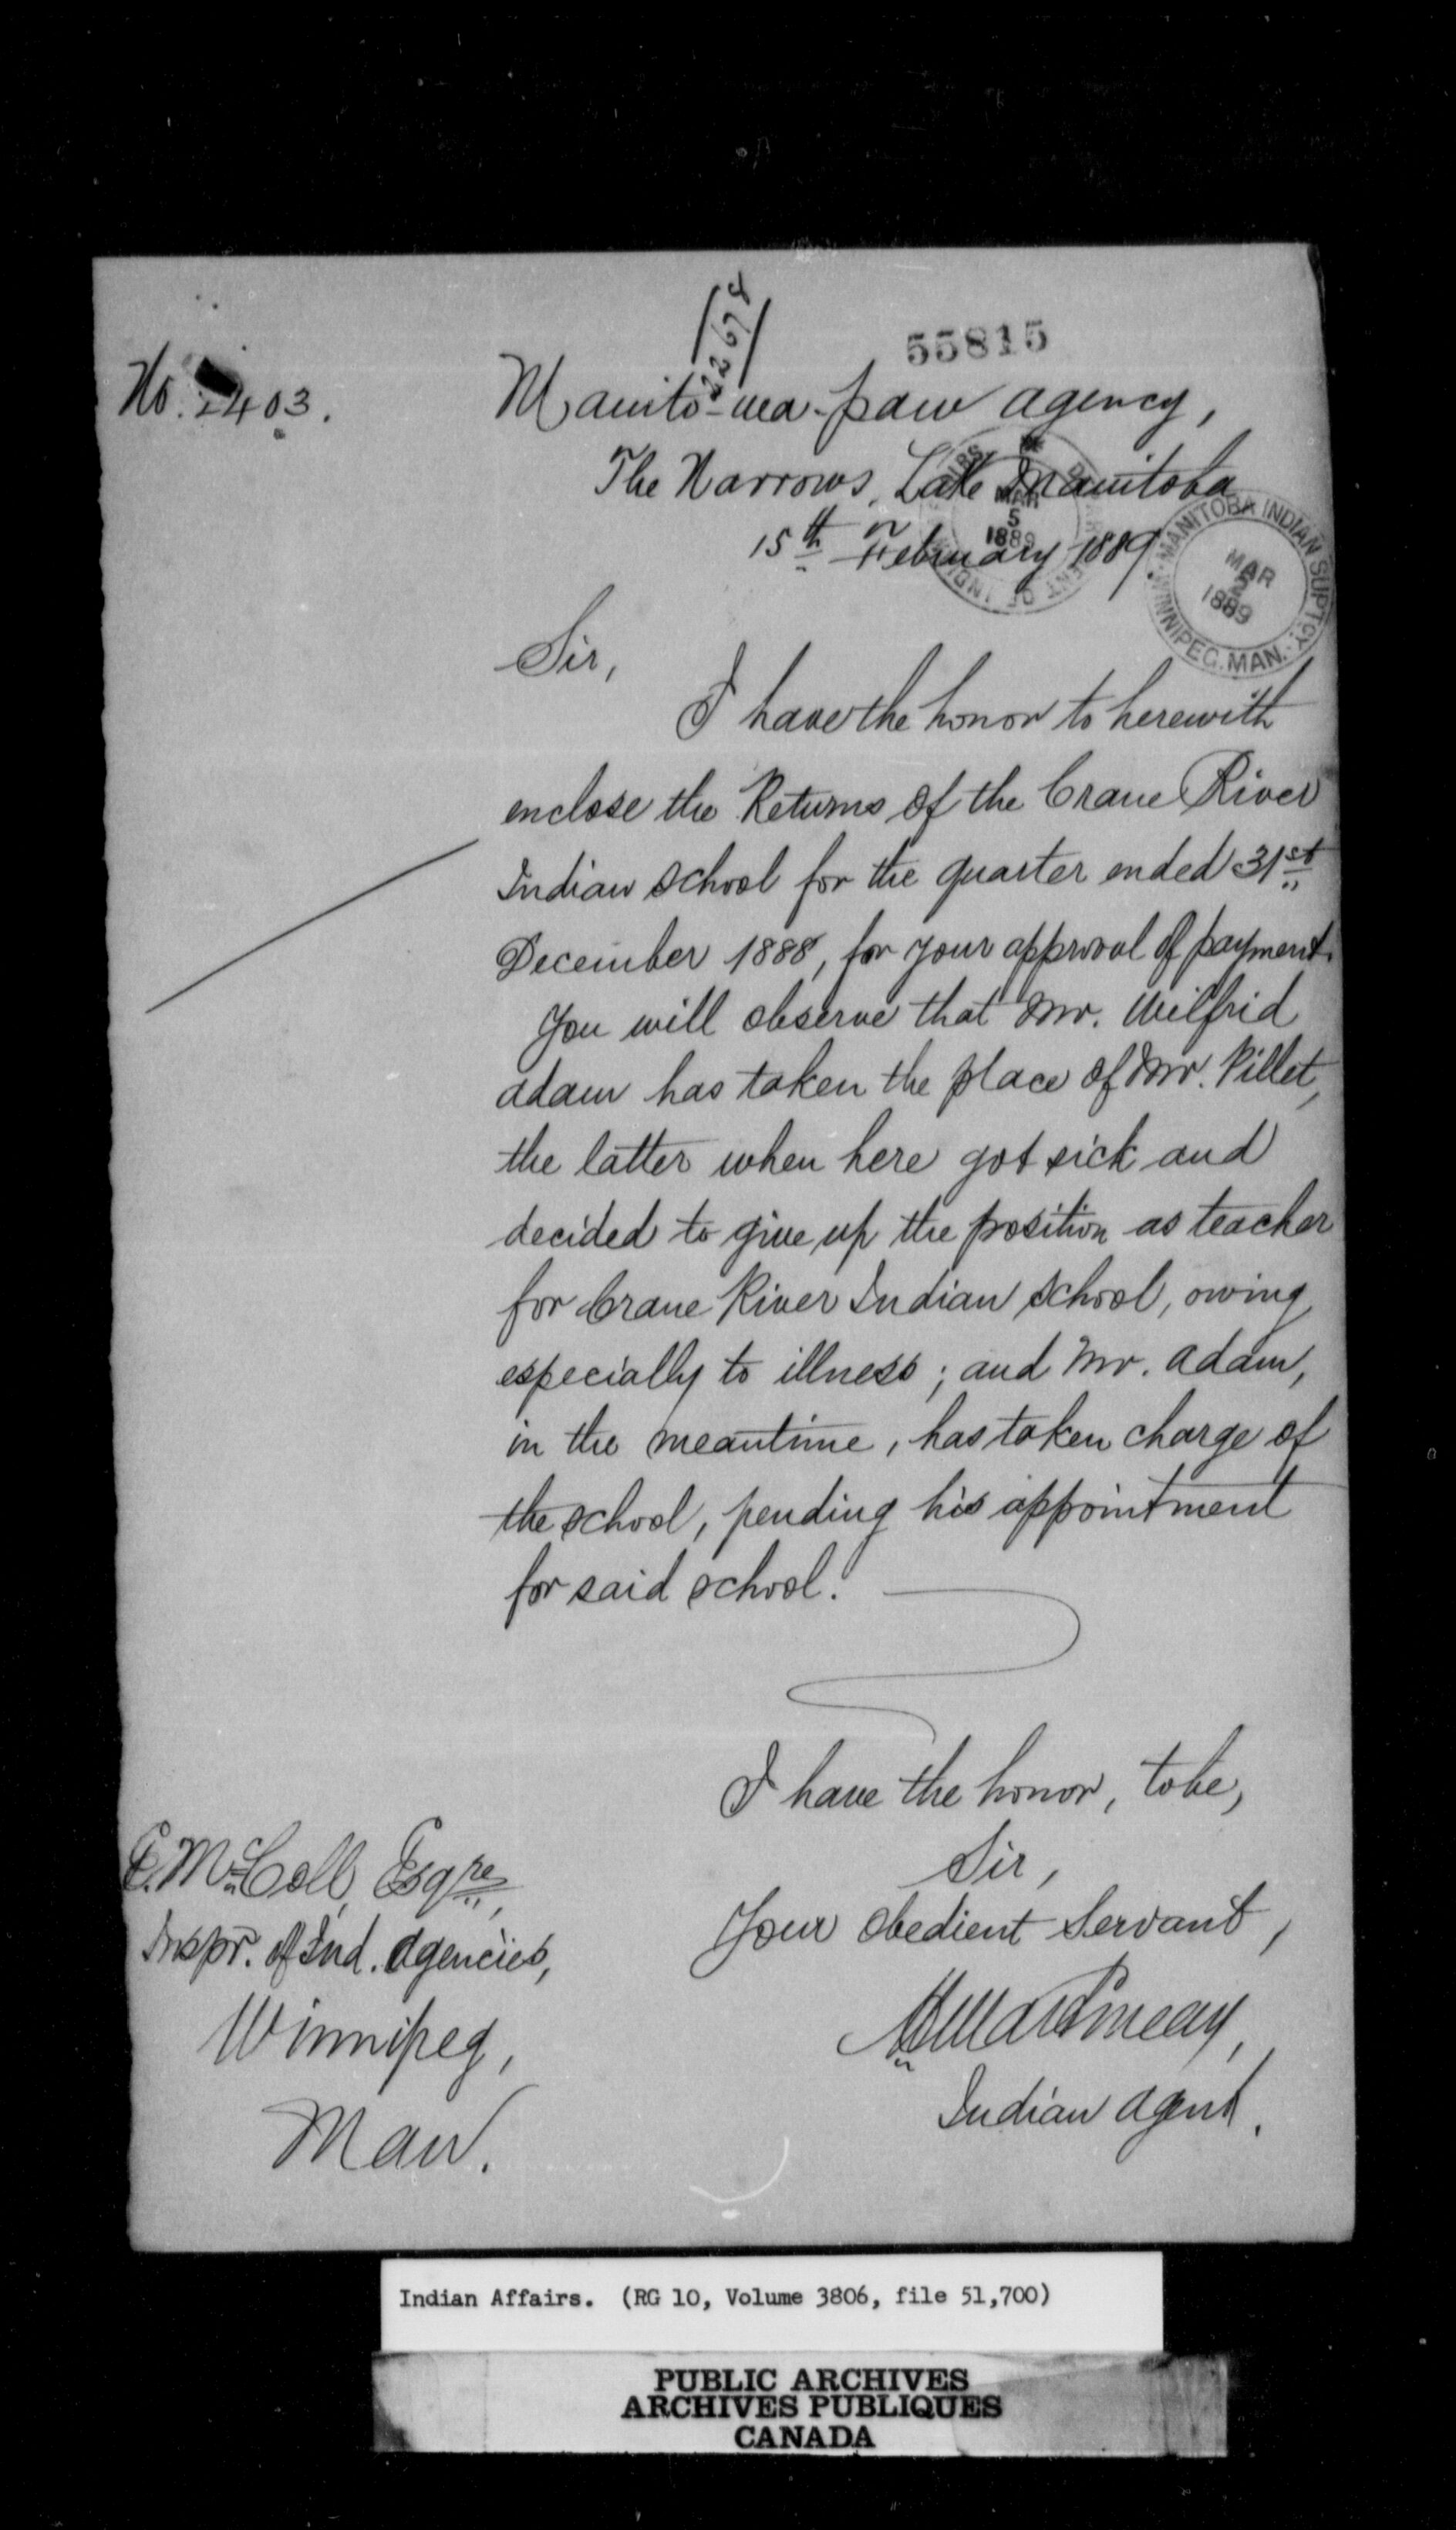 2267 8
55815
No. 2403.
Manito-wa-paw agency,
The Narrows, Lake Manitoba
15th February 1889.
DEPARTMENT OF INDIAN AFFAIRS
MAR
5
1889
MANITOBA INDIAN SUPTCY.
MAR
2
1889
WINNIPEG. MAN.
Sir,
I have the honor to herewith
enclose the Returns of the Crane River
Indian school for the quarter ended 31st
December 1888, for your approval of payment.
You will observe that Mr. Wilfrid
Adam has taken the place of Mr. Pillet,
the latter when here got sick and
decided to give up the position as teacher
for Crane River Indian school, owing
especially to illness; and Mr. Adam,
in the meantime, has taken charge of
the school, pending his appointment
for said school.
I have the honor, to be,
Sir,
Your obedient Servant,
H Martineau,
Indian agent.
E. McColl, Esqre,
Inspr. of Ind. Agencies,
Winnipeg,
Man.
Indian Affairs. (RG 10, Volume 3806, file 51,700)
PUBLIC ARCHIVES
ARCHIVES PUBLIQUES
CANADA